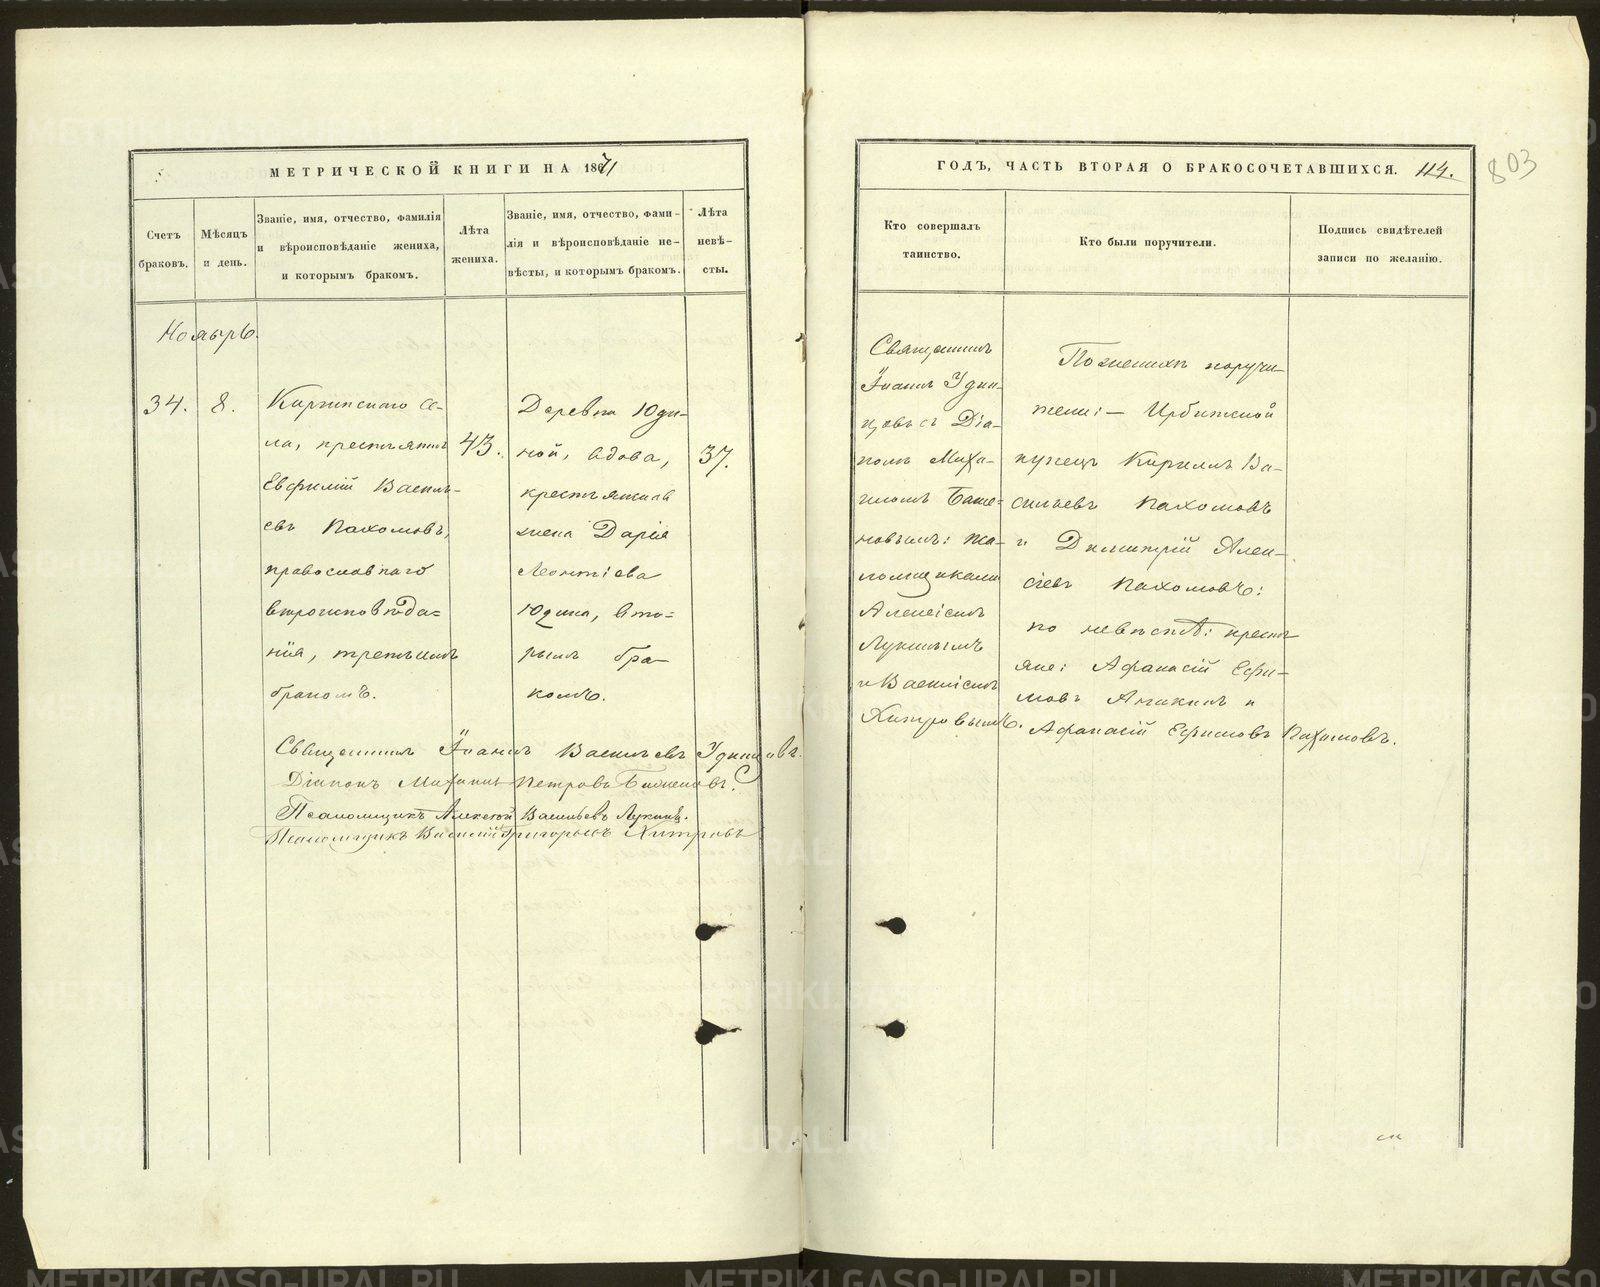 МЕТРИЧЕСКОЙ КНИГИ НА 1871
Счетъ
браковъ.
Мѣсяцъ
и день.
Званіе, имя, отчество, фамилія
и вѣроисповѣданіе жениха,
и которымъ бракомъ.
Лѣта
жениха.
Званіе, имя, отчество, фами-
лія и вѣроисповѣданіе не-
вѣсты, и которымъ бракомъ.
Лѣта
невѣ-
сты.
Ноябрь.
34.
8.
Киргинскаго се-
ла, крестьянинъ
Евфимій Василь-
евъ Пахомовъ,
православнаго
вѣроисповѣда-
нія, третьимъ
бракомъ.
43.
Деревни Юди-
ной, вдова,
крестьянская
жена Дарія
Леонтіева
Юдина, вто-
рымъ бра-
комъ.
37.
Священникъ Іоаннъ Васильевъ Удинцовъ.
Діаконъ Михаилъ Петровъ Баженовъ.
Псаломщикъ Алексѣй Васильевъ Лукинъ.
Псаломщикъ Василій Григорьевъ Хитровъ
ГОДЪ, ЧАСТЬ ВТОРАЯ О БРАКОСОЧЕТАВШИХСЯ.
114.
803
Кто совершалъ
таинство.
Кто были поручители.
Подпись свидѣтелей
записи по желанію.
Священникъ
Іоаннъ Удин-
цовъ съ Діа-
комъ Миха-
иломъ Баже-
новымъ: пса-
ломщиками
Алексіемъ
Лукинымъ
и Василіемъ
Хитровымъ.
По женихѣ поручи-
тели:— Ирбитской
купецъ Кириллъ Ва-
сильевъ Пахомовъ
и Димитрій Алек-
сіевъ Пахомовъ:
по невѣстѣ: кресть
яне: Афанасій Ефи-
мовъ Аникинъ и
Афанасій Ефимовъ Пахомовъ.
METRIKI.GASO-URAL.RU